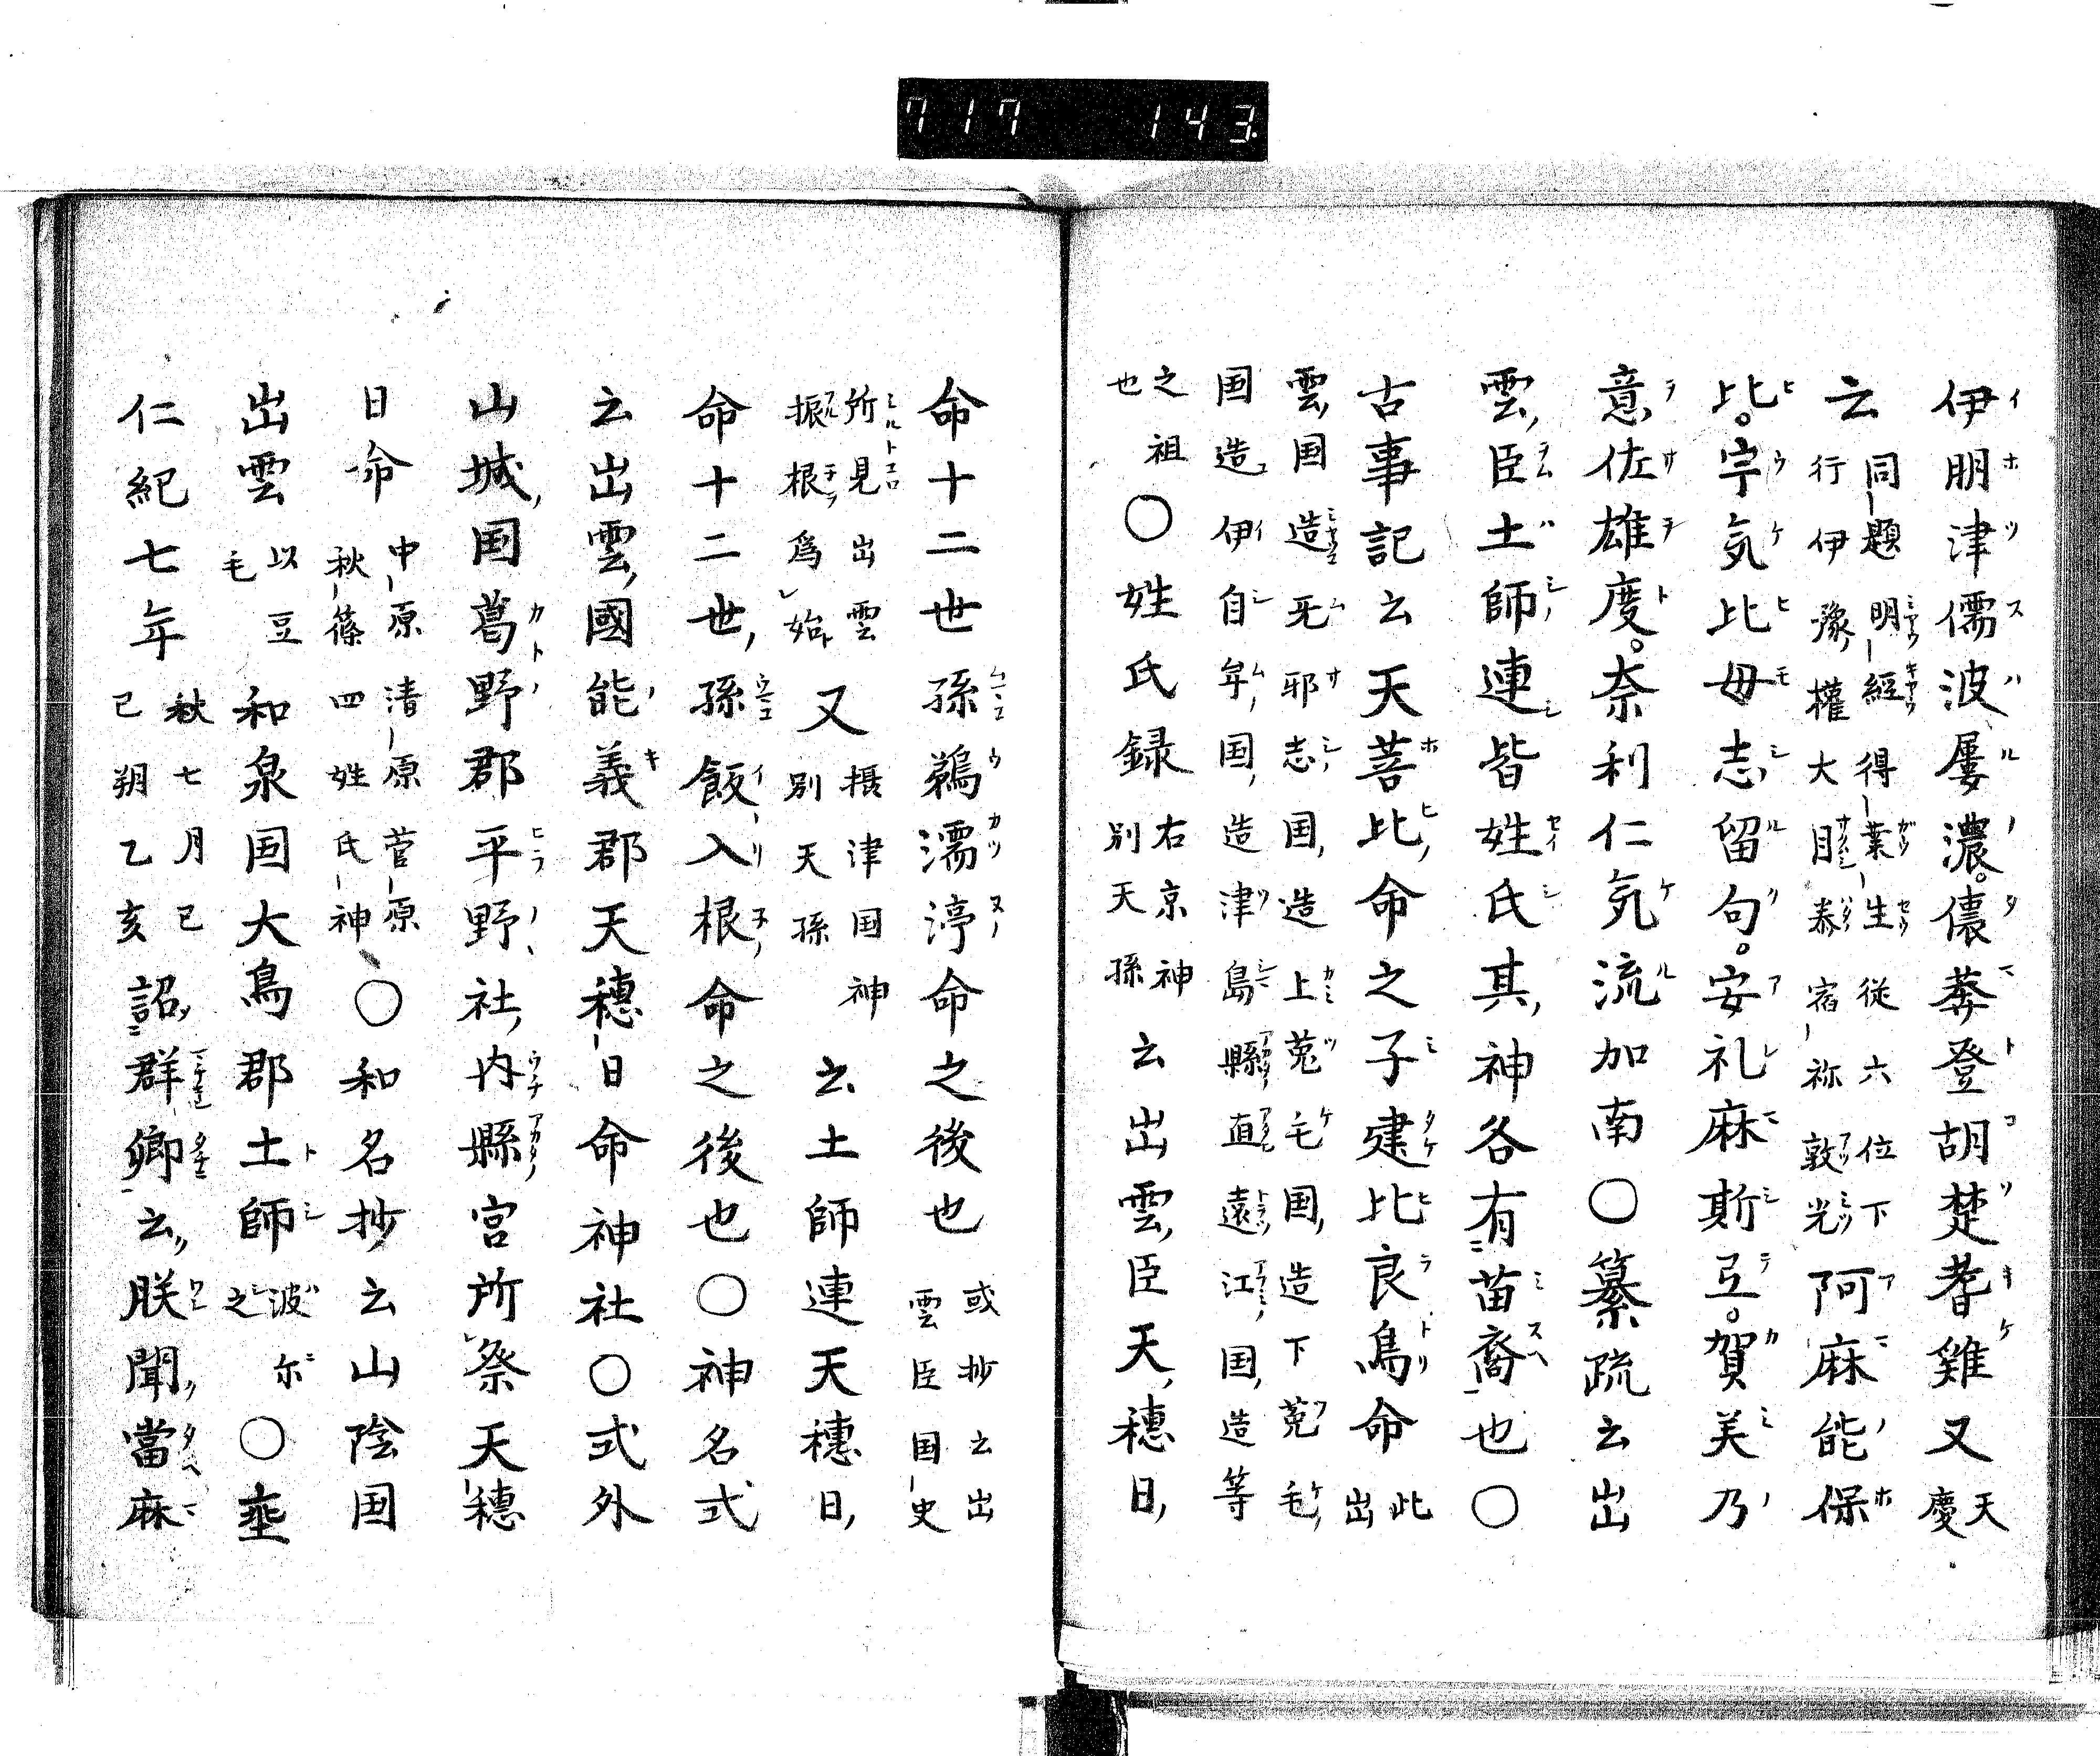 717 143
伊朋津儒波屢濃。儂莽登胡楚耆雞又天慶
云同題明經得業生從六位下行伊豫權大目泰宿祢敦光阿麻能保
比。宇気比毋志留句。安礼麻斯弖。賀美乃
意佐雄度。奈利仁気流加南〇纂疏云出
雲臣土師連皆姓氏其神各有苗裔也〇
古事記云天菩比命之子建比良鳥命此出
雲国造牙邪志国造上菟毛国造下菟毛
国造伊自牟国造津島縣直遠江国造等
之祖也〇姓氏録右京神別天孫云出雲臣天穗日
命十二世孫鵜濡渟命之後也或抄云出雲臣国史
所見出雲振根為始又摂津国神別天孫云土師連天穗日
命十二世孫飯入根命之後也〇神名式
云出雲國能義郡天穗日命神社〇式外
山城国葛野郡平野社内縣宮所祭天穗
日命中原清原菅原秋篠四姓氏神〇和名抄云山陰国
出雲以豆毛和泉国大鳥郡土師波尓之〇垂
仁紀七年秋七月己巳朔乙亥詔群卿云朕聞當麻